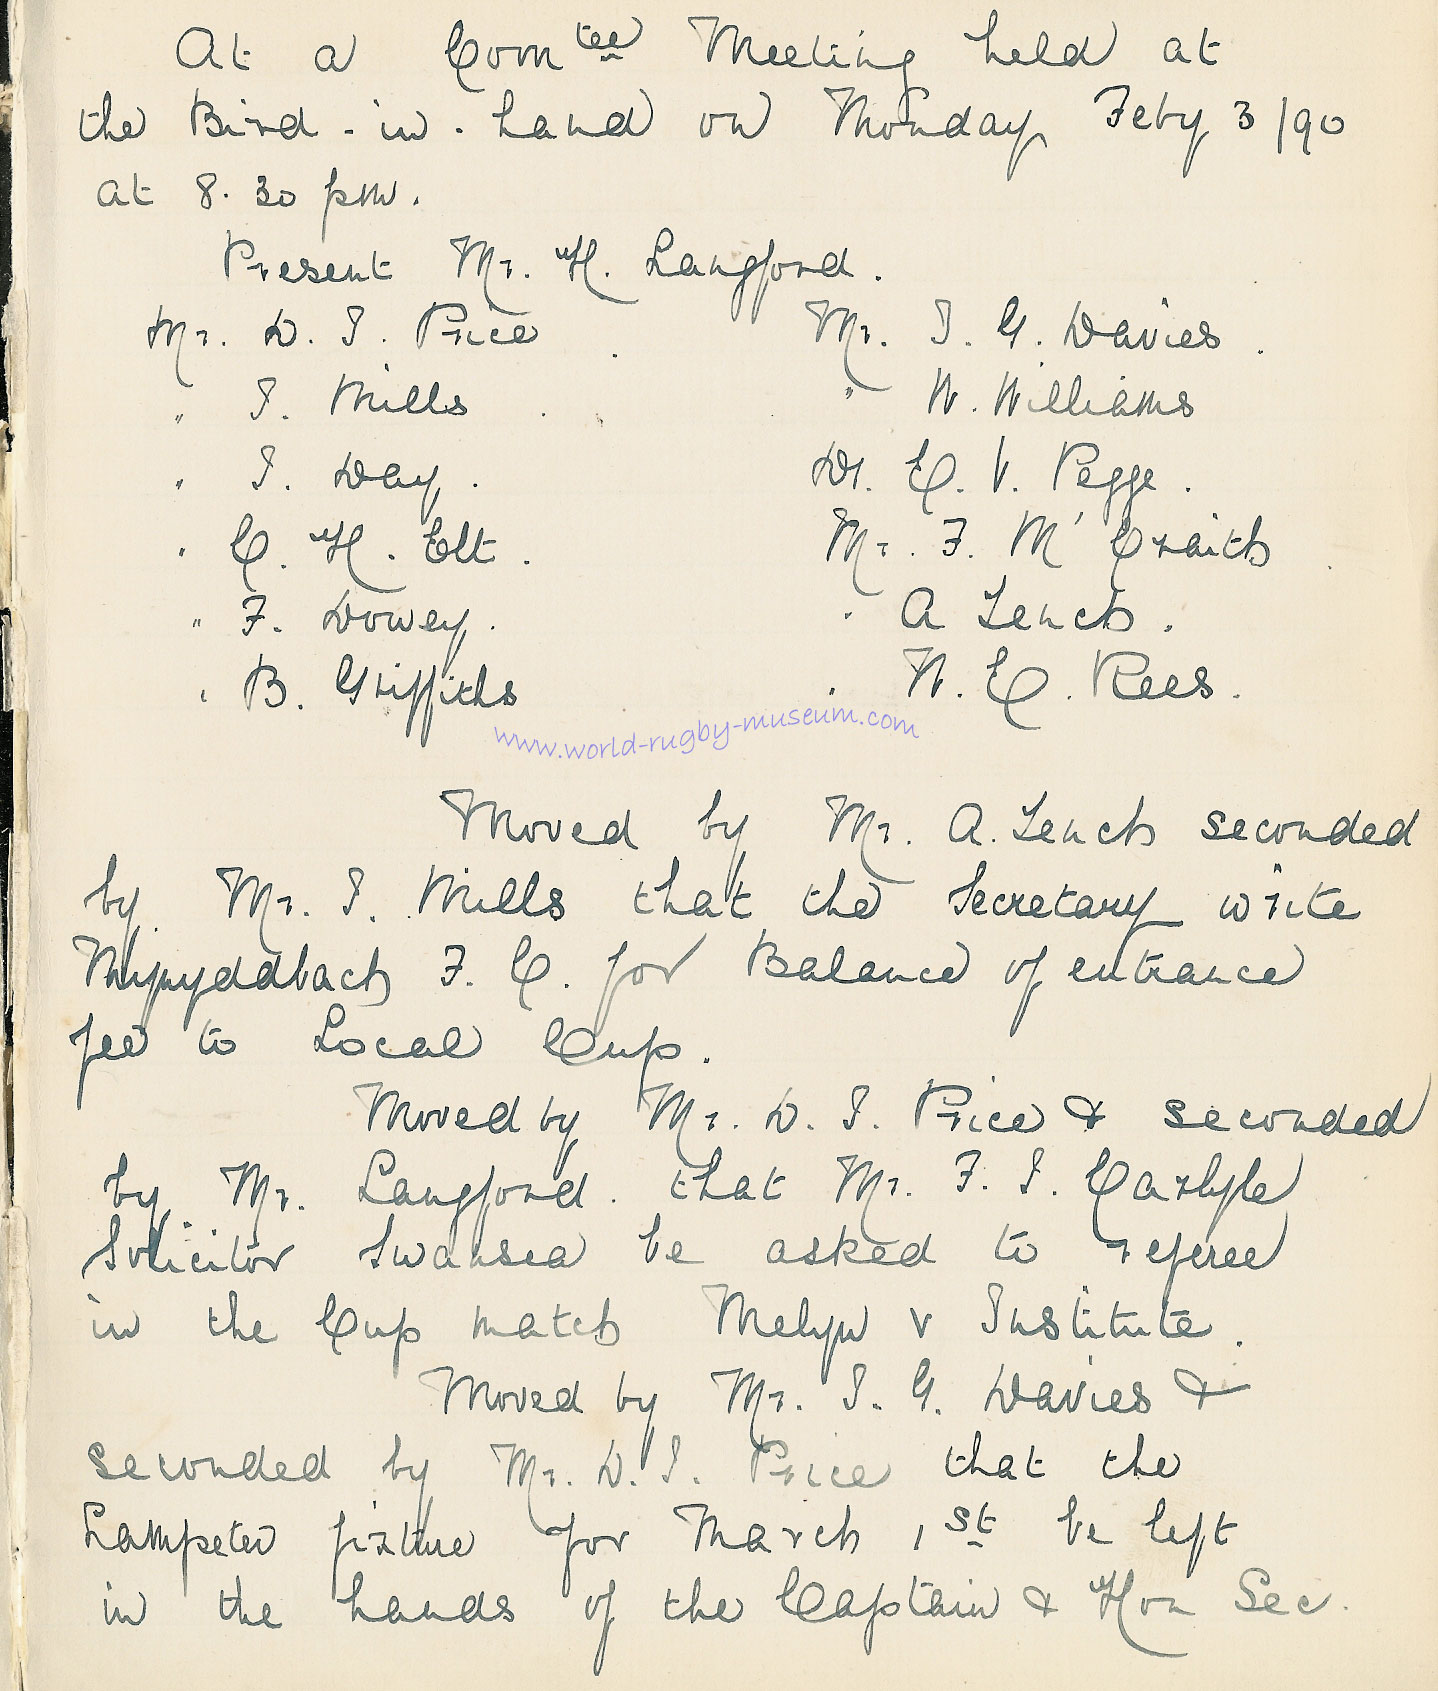 At a Com tee Meeting held at
the Bird-in-hand on Monday Feby 3/90
at 8.30 pm.
Present Mr. H. Langford.
Mr. D. J. Price . Mr. J. G. Davies .
" J. Mills . " W. Williams
" J. Day . Dr. E. V. Pegge .
" C. H. Elt . Mr. F. M' Craith .
" F. Dowey . " A Lench .
" B. Griffiths " W. E. Rees .
www.world-rugby-museum.com
Moved by Mr. A. Lench seconded
by Mr. J. Mills that the Secretary write
Mynyddbach F. C. for Balance of entrance
fee to Local Cup .
Moved by Mr. D. J. Price & seconded
by Mr. Langford . that Mr. F. J. Carlyle
Solicitor Swansea be asked to referee
in the Cup match Melyn v Institute .
Moved by Mr. J. G. Davies &
seconded by Mr. D. J. Price that the
Lampeter fixture for March 1st be left
in the hands of the Captain & Hon Sec .